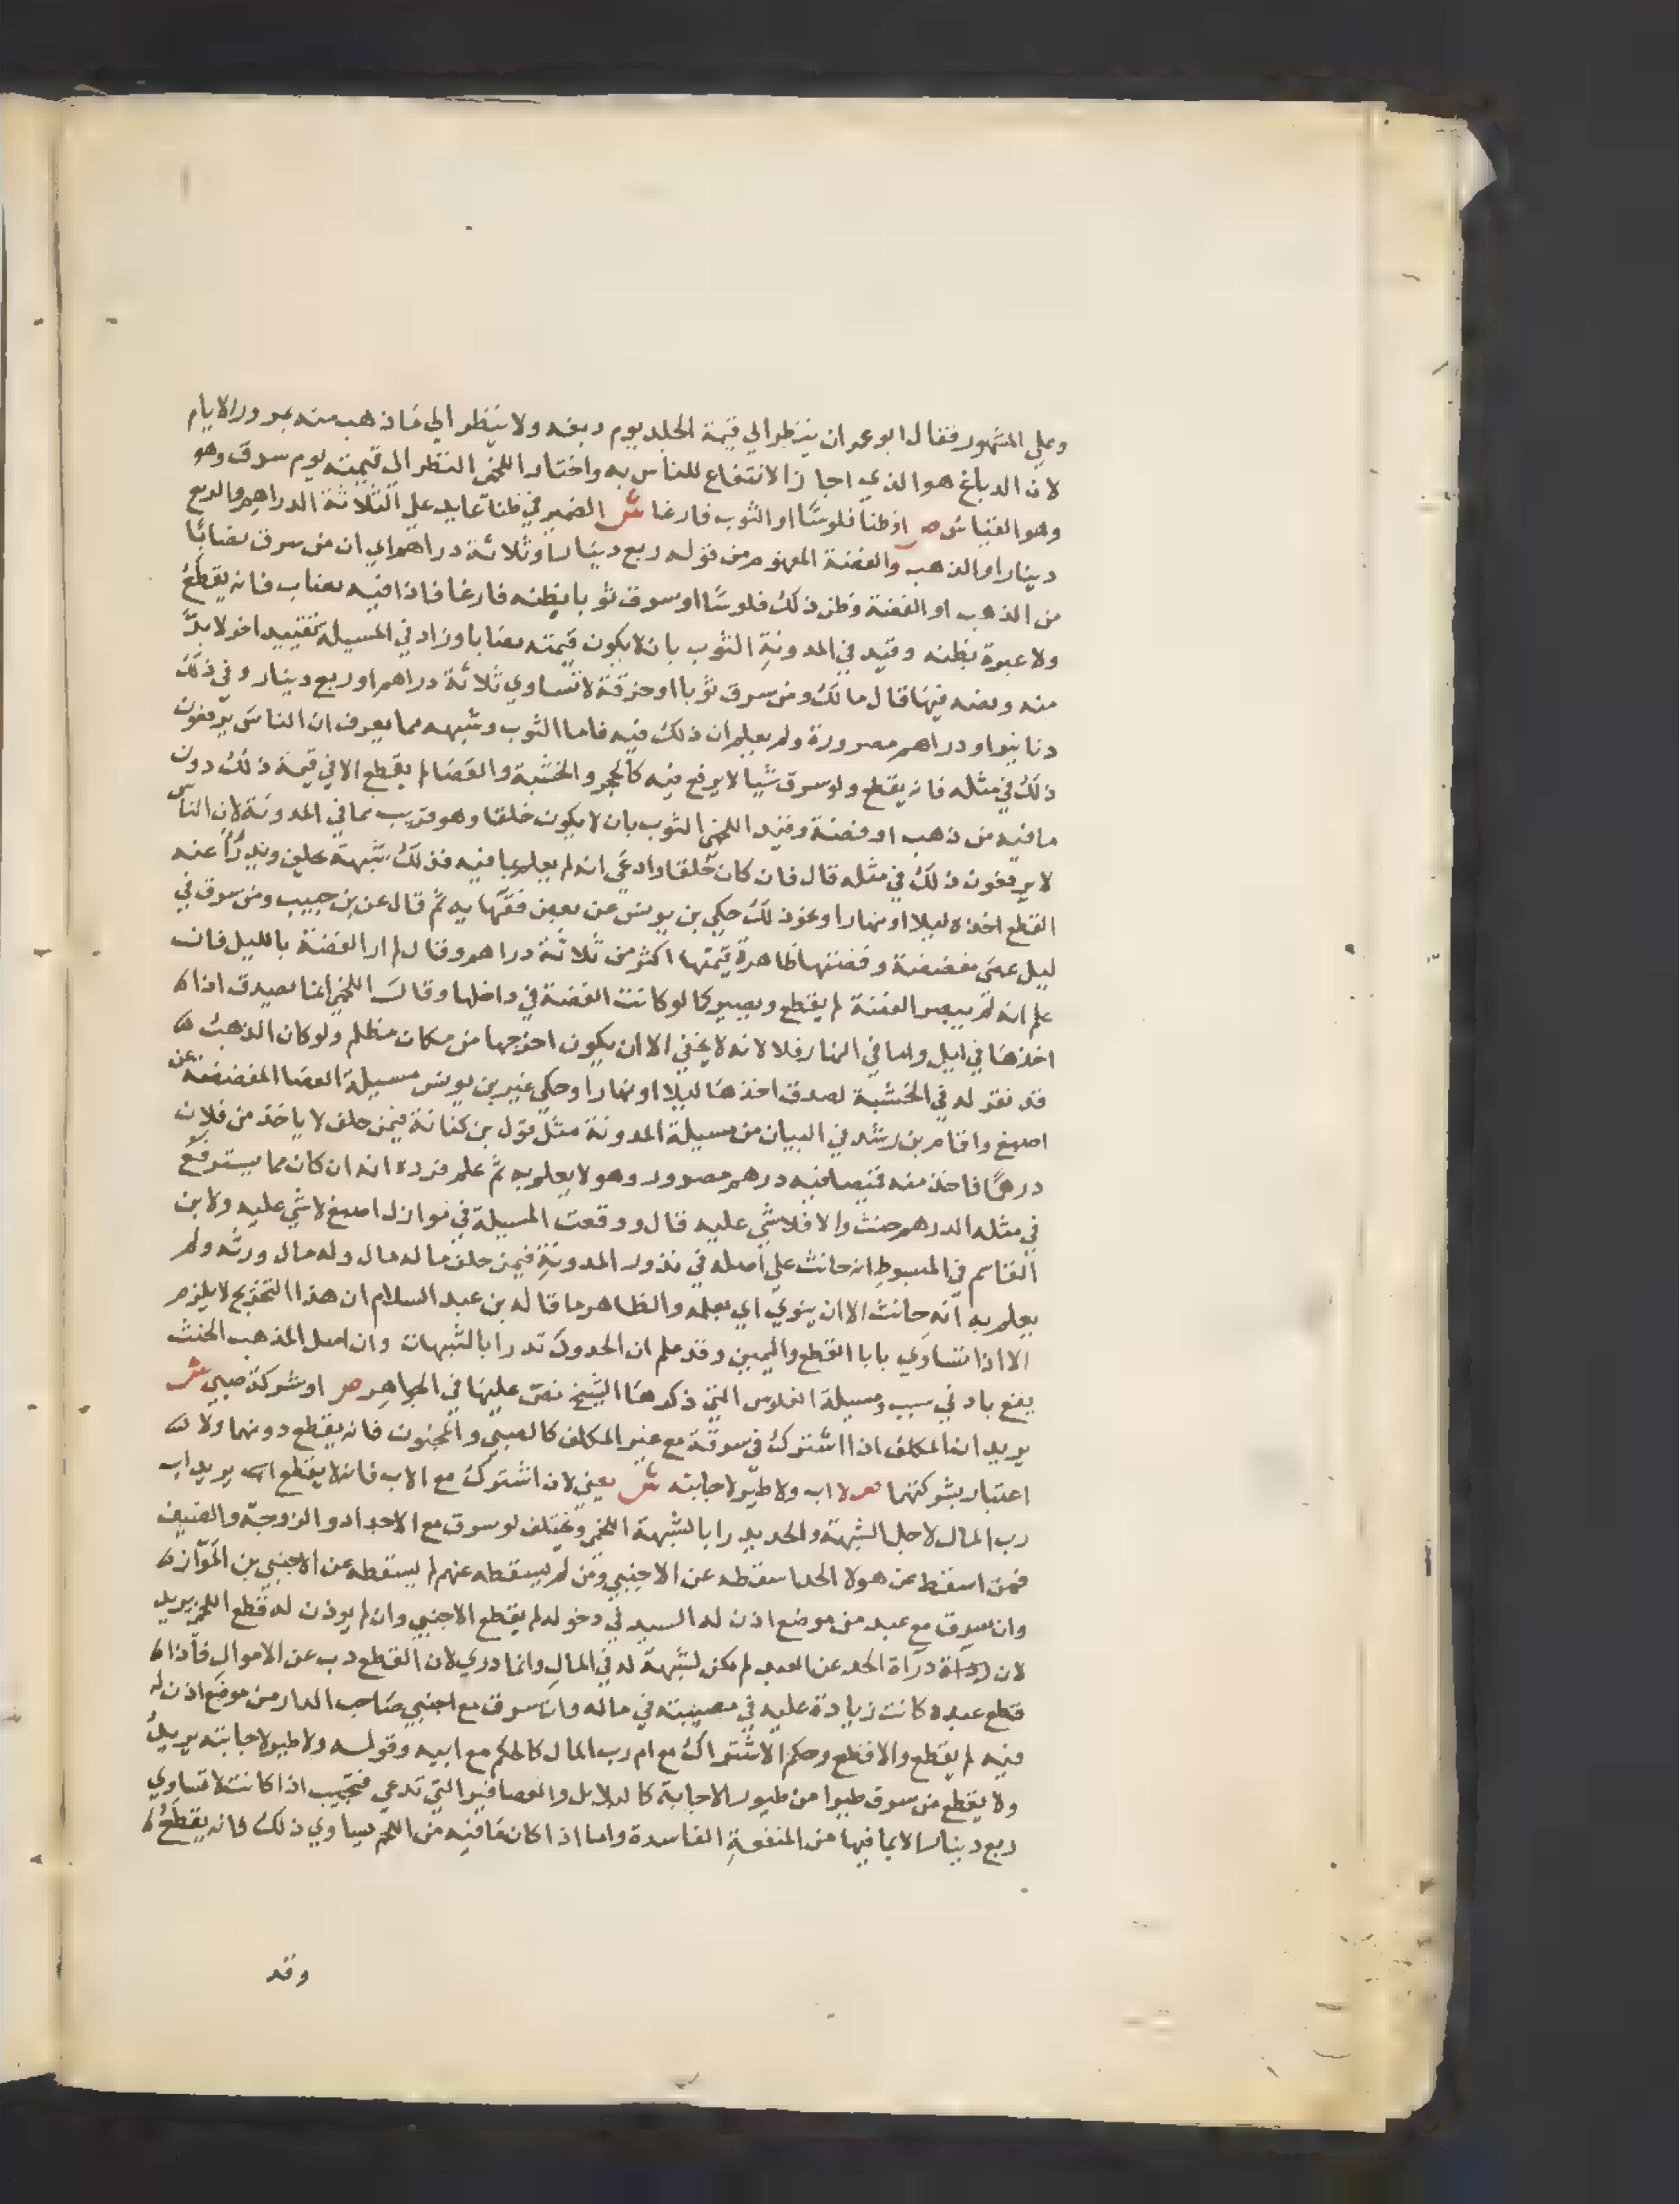 وعلي المشهور فقال ابو عمران ينظر الي قيمة الجلد يوم دبغه ولا ينظر الي ما ذهب منه بمرور الايام
لان الدباغ هو الذي اجاز الانتفاع للناس به واختار اللخمي النظر الي قيمته يوم سرق وهو
وهو القياس ص او ظنا فلوسًا او الثوب فارغا ش الضمير في ظنا عايد علي الثلاثة الدراهم والربع
دينار او الذهب والفضة المفهوم من قوله ربع دينار او ثلاثة دراهم اي ان من سرق نصابًا
من الذهب او الفضة وظن ذلك فلوسًا او سرق ثوبا يظنه فارغا فاذا فيه نصاب فانه يقطع
ولا عبرة بظنه وقيد في المدونةِ الثوب بان لا يكون قيمته نصابا وزاد في المسيلة تقييد اخر لا بدَّ
منه ونصه فيها قال مالك ومن سرق ثوبا او خرقة لا تساوي ثلاثة دراهم او ربع دينار وفي ذلك
دنانير او دراهم مصرورة ولم يعلم ان ذلك فيه فاما الثوب وشبهه مما يعرف ان الناس يرفعون
ذلك في مثله فانه يقطع ولو سرق شيا لا يرفع فيه كالحجر والخشبة والعصا لم يقطع الا في قيمة ذلك دون
ما فيه من ذهب او فضة وقيد اللخمي الثوب بان لا يكون خلقا وهو قريب مما في المدونة لان الناس
لا يرفعون ذلك في مثله قال فان كان خلقا وادعي انه لم يعلم بما فيه فذلك شبهة يحلف ويدرأ عنه
القطع اخذه ليلا او نهارا ونحو ذلك حكي بن يونس عن بعض فقهايه ثم قال عن بن حبيب ومن سرق في
ليل عصى مفضضة وفضتها ظاهرة قيمتها اكثر من ثلاثة دراهم وقال لم ار الفضة بالليل فان
علم انه لم يبصر الفضة لم يقطع ويصير كما لو كانت الفضة في داخلها وقال اللخمي انما يصدق اذا
اخذها في ليل واما في النهار فلا لانه لا يخفي الا ان يكون اخرجها من مكان مظلم ولو كان الذهب
قد نقر له في الخشبة لصدق اخذها ليلا او نهارا وحكي غير بن يونس مسيلة العصا المفضضة عن
اصبغ واقام بن رشد في البيان من مسيلة المدونة مثل قول بن كنانة فيمن حلف لا ياخذ من فلان
درهمًا فاخذ منه قميصا فيه درهم مصرور وهو لا يعلم به ثم علم فرده انه ان كان مما يسترفع
في مثله الدرهم حنث والا فلا شي عليه قال ووقعت المسيلة في نوازل اصبغ لا شي عليه ولابن
القاسم في المبسوطِ انه حانث علي اصله في نذور المدونةِ فيمن حلف ما له مال وله مال ورثه ولم
يعلم به انه حانث الا ان ينوي اي يعلمه والظاهر ما قاله بن عبد السلام ان هذا التخريج لا يلزم
الا اذا تساوي بابا القطع واليمين وقد علم ان الحدود تدرا بالشبهات وان اصل المذهب الحنث
يقع بادني سبب ومسيلة الفلوس التي ذكرها الشيخ نص عليها في الجواهر ص او شركة صبي ش
يريد ان المكلف اذا اشترك في سرقة مع غير المكلف كالصبي والمجنون فانه يقطع دونهما ولا
اعتبار بشركتهما ص لا اب ولا طير لاجابته ش يعني لان اشترك مع الاب فانه لا يقطع يريد اب
رب المال لاجل الشبهة والحد يدرا بالشبهة اللخمي ويختلف لو سرق مع الاجداد والزوجة والضيف
فمن اسقط عن هولا الحد اسقطه عن الاجنبي ومن لم يسقطه عنهم لم يسقطه عن الاجنبي بن المواز
وان سرق مع عبد من موضع اذن له السيد في دخوله لم يقطع الاجنبي وان لم يوذن له قطع اللخمي يريد
لان دراة الحد عن العبد لم يكن لشبهة له في المال وانما دري لان القطع ذب عن الاموال فاذا
قطع عبده كانت زيادة عليه في مصيبته في ماله وان سرق مع اجنبي صاحب الدار من موضع اذن له
فيه لم يقطع والا قطع وحكم الاشتراك مع ام رب المال كالحكم مع ابيه وقوله ولا طير لاجابته يريد
ولا يقطع من سرق طيرا من طيور الاجابة كالبلابل والعصافير التي تدعي فتجيب اذا كانت لا تساوي
ربع دينار الا بما فيها من المنفعةِ الفاسدة واما اذا كان ما فيه من اللحم يساوي ذلك فانه يقطع
وقد